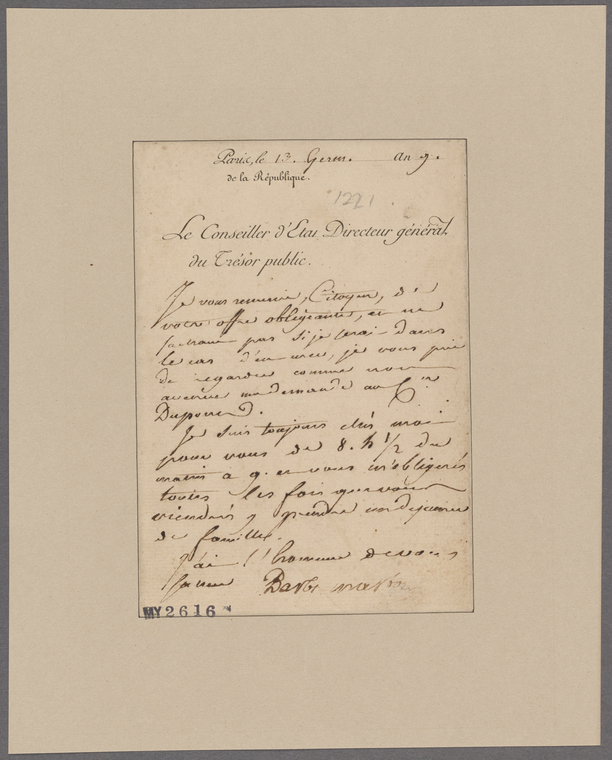 Paris, le 13. Germ. An 9.
de la République.
1221
Le Conseiller d'Etat, Directeur général
du Trésor public.
Je vous remercie, Citoyen, de
votre offre obligeante, et ne
sachant pas si je serai dans
le cas d'en user, je vous prie
de regarder comme non
avenue ma demande au C.en
Duponend.
Je suis toujours chés moi
pour vous de 8. h 1/2 du
matin a 9. et vous m'obligerés
toutes les fois que vous
viendrés y prendre un dejeuner
de famille.
J'ai l'honneur de vous
saluer Barbé marbois
MY2616